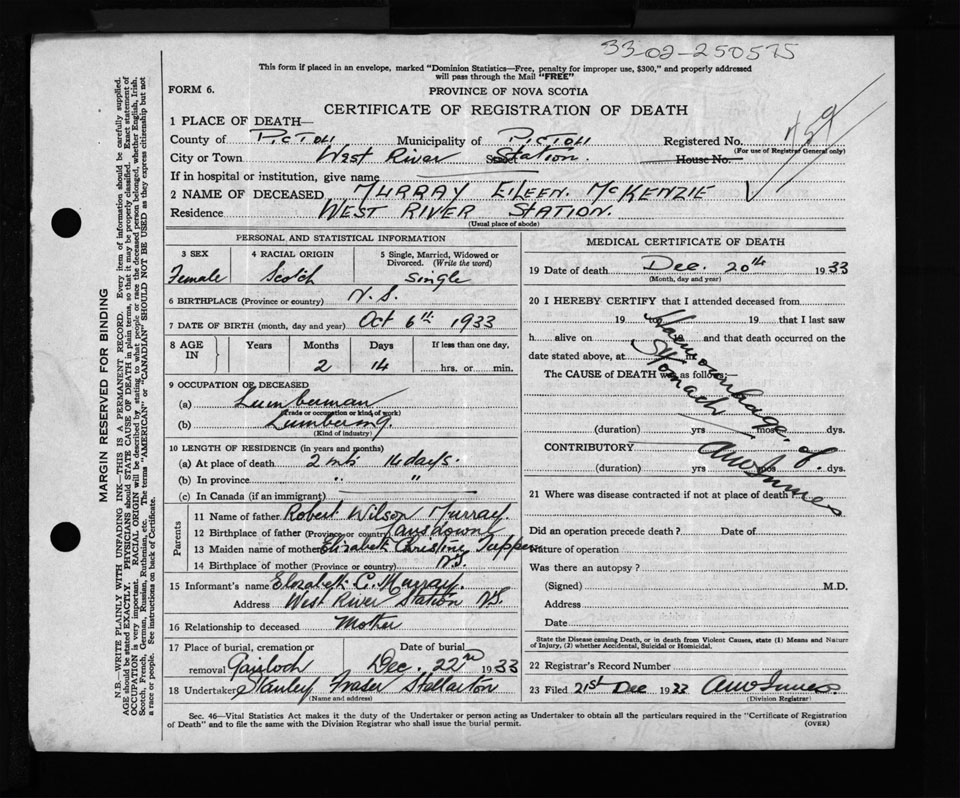 33-02-250575
This form if placed in an envelope, marked "Dominion Statistics—Free, penalty for improper use, $300," and properly addressed
will pass through the Mail "FREE"
FORM 6.
PROVINCE OF NOVA SCOTIA
CERTIFICATE OF REGISTRATION OF DEATH
1 PLACE OF DEATH—
County of PICTOU Municipality of PICTOU Registered No.
(For use of Registrar General only)
City or Town West River Station. House No.
If in hospital or institution, give name
2 NAME OF DECEASED MURRAY EILEEN. McKENZIE
Residence WEST RIVER STATION.
(Usual place of abode)
PERSONAL AND STATISTICAL INFORMATION
3 SEX 4 RACIAL ORIGIN 5 Single, Married, Widowed or Divorced. (Write the word)
Female Scotch Single
6 BIRTHPLACE (Province or country) N.S.
7 DATE OF BIRTH (month, day and year) Oct 6th 1933
8 AGE IN Years Months Days If less than one day.
2 14 hrs. or min.
9 OCCUPATION OF DECEASED
(a) Lumberman
(Trade or occupation or kind of work)
(b) Lumbering.
(Kind of industry)
10 LENGTH OF RESIDENCE (in years and months)
(a) At place of death 2 mts 14 days.
(b) In province " "
(c) In Canada (if an immigrant)
Parents
11 Name of father Robert Wilson Murray.
12 Birthplace of father (Province or country) Lansdowne
13 Maiden name of mother Elizabeth Christine Tupper
14 Birthplace of mother (Province or country) N.S.
15 Informant's name Elizabeth C. Murray.
Address West River Station N.S.
16 Relationship to deceased Mother
17 Place of burial, cremation or Date of burial
removal Gairloch Dec. 22nd 1933
18 Undertaker Stanley Fraser Stellarton
(Name and address)
MEDICAL CERTIFICATE OF DEATH
19 Date of death Dec. 20th 1933
(Month, day and year)
20 I HEREBY CERTIFY that I attended deceased from
19 19 that I last saw
h alive on and that death occurred on the
date stated above, at
The CAUSE OF DEATH was as follows
Haemorrhage of
Stomach
(duration) yrs mos dys.
CONTRIBUTORY
(duration) yrs mos dys.
21 Where was disease contracted if not at place of death
Did an operation precede death? Date of
Nature of operation
Was there an autopsy?
(Signed) M.D.
Address
Date
State the Disease causing Death, or in death from Violent Causes, state (1) Means and Nature
of Injury, (2) whether Accidental, Suicidal or Homicidal.
22 Registrar's Record Number
23 Filed 21st Dec 1933
(Division Registrar)
Sec. 46—Vital Statistics Act makes it the duty of the Undertaker or person acting as Undertaker to obtain all the particulars required in the "Certificate of Registration
of Death" and to file the same with the Division Registrar who shall issue the burial permit.
(OVER)
MARGIN RESERVED FOR BINDING
N.B.—WRITE PLAINLY WITH UNFADING INK—THIS IS A PERMANENT RECORD. Every item of information should be carefully supplied.
AGE should be stated EXACTLY. PHYSICIANS should STATE CAUSE OF DEATH in plain terms, so that it may be properly classified. Exact statement of
OCCUPATION is very important. RACIAL ORIGIN will be described by stating to what people or race the deceased person belonged, whether English, Irish,
Scotch, French, German, Russian, Ruthenian, etc. The terms "AMERICAN" or "CANADIAN" SHOULD NOT BE USED as they express citizenship but not
a race or people. See instructions on back of Certificate.